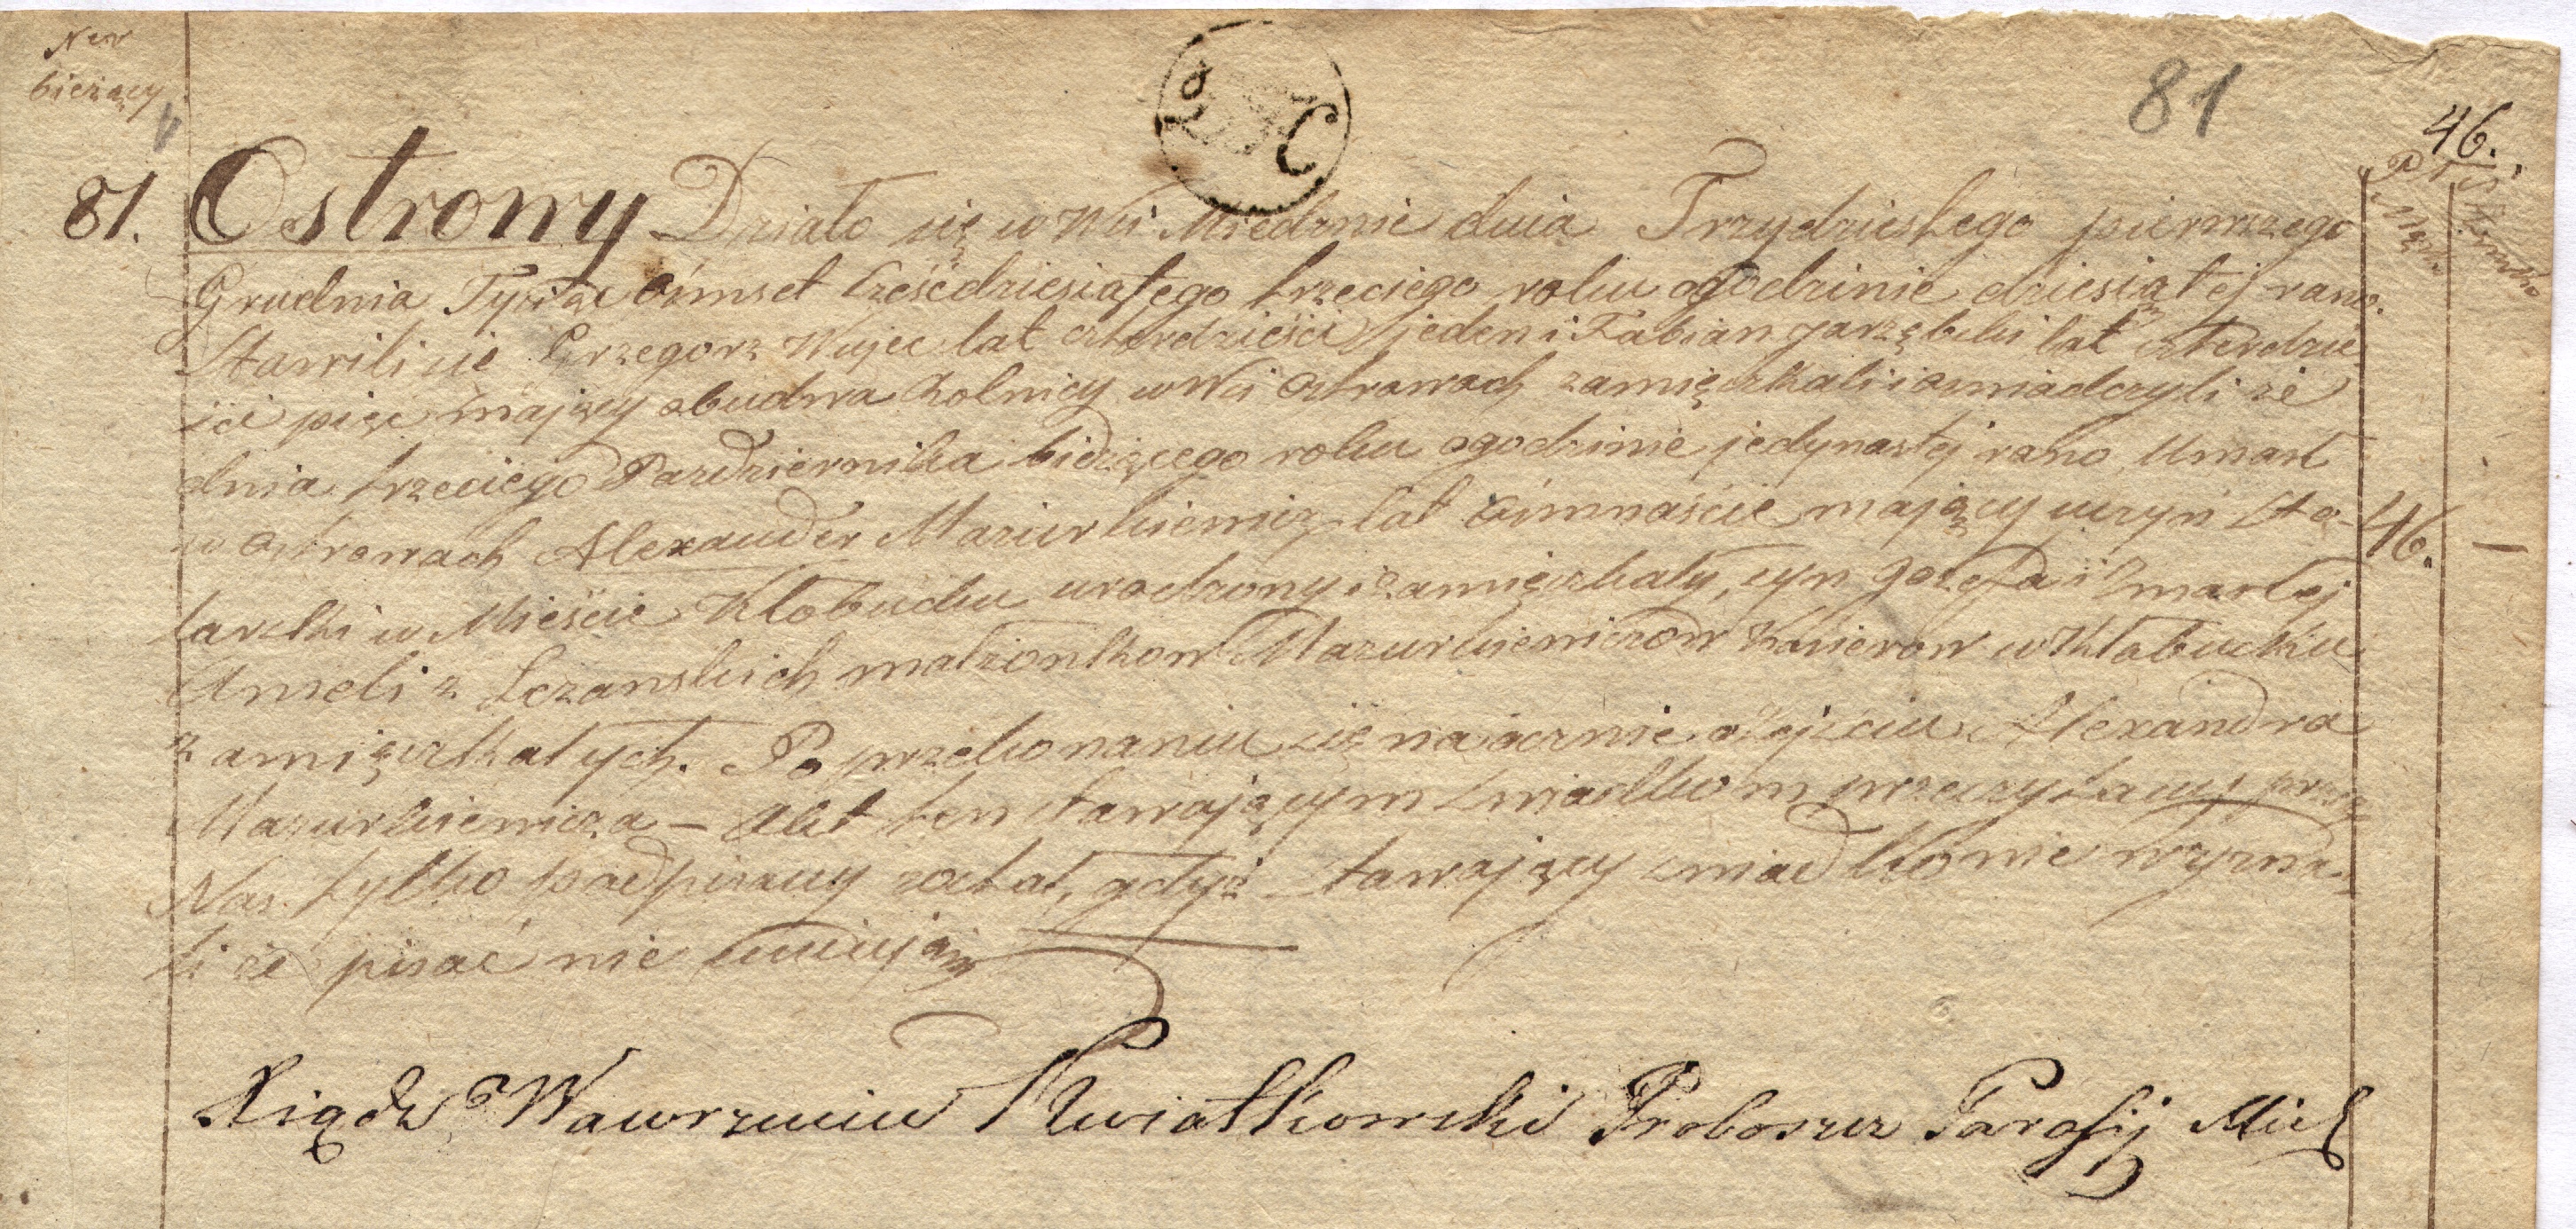 Ner
bieżący
81
46.
Płci
Męzka
81. Ostrowy Działo się w Wsi Miedznie dnia Trzydziestego pierwszego
Grudnia Tysiąc Ośmset sześćdziesiątego trzeciego roku o godzinie dziesiątej rano.
Stawili się Grzegorz Wujec lat czterdzieści jeden i Fabian Jarzębski lat czterdzie
ści pięc mający obudwa Rolnicy w Wsi Ostrowach zamięszkali i oswiadczyli że
dnia trzeciego Pazdziernika bieżącego roku o godzinie jedynastej rano, Umarł
w Ostrowach Alexander Mazurkiewicz lat ośmnaście mający uczyń Sto- 46. —
larski w Mieście Kłobucku urodzony i zamięszkały, syn Józefa i Zmarłej
Anieli z Łczanskich małżonkow Mazurkiewiczow w Kłobucku
zamięszkałych. Po przekonaniu się naocznie o zejściu Alexandra
Mazurkiewicza – Akt ten stawającym świadkom przeczytany przez
Nas tylko podpisany został, gdyż stawający swiadkowie wyzna-
li że pisać nie umieją
Xiądz Wawrzeniec Kwiatkowski Proboszcz Parafij Mied